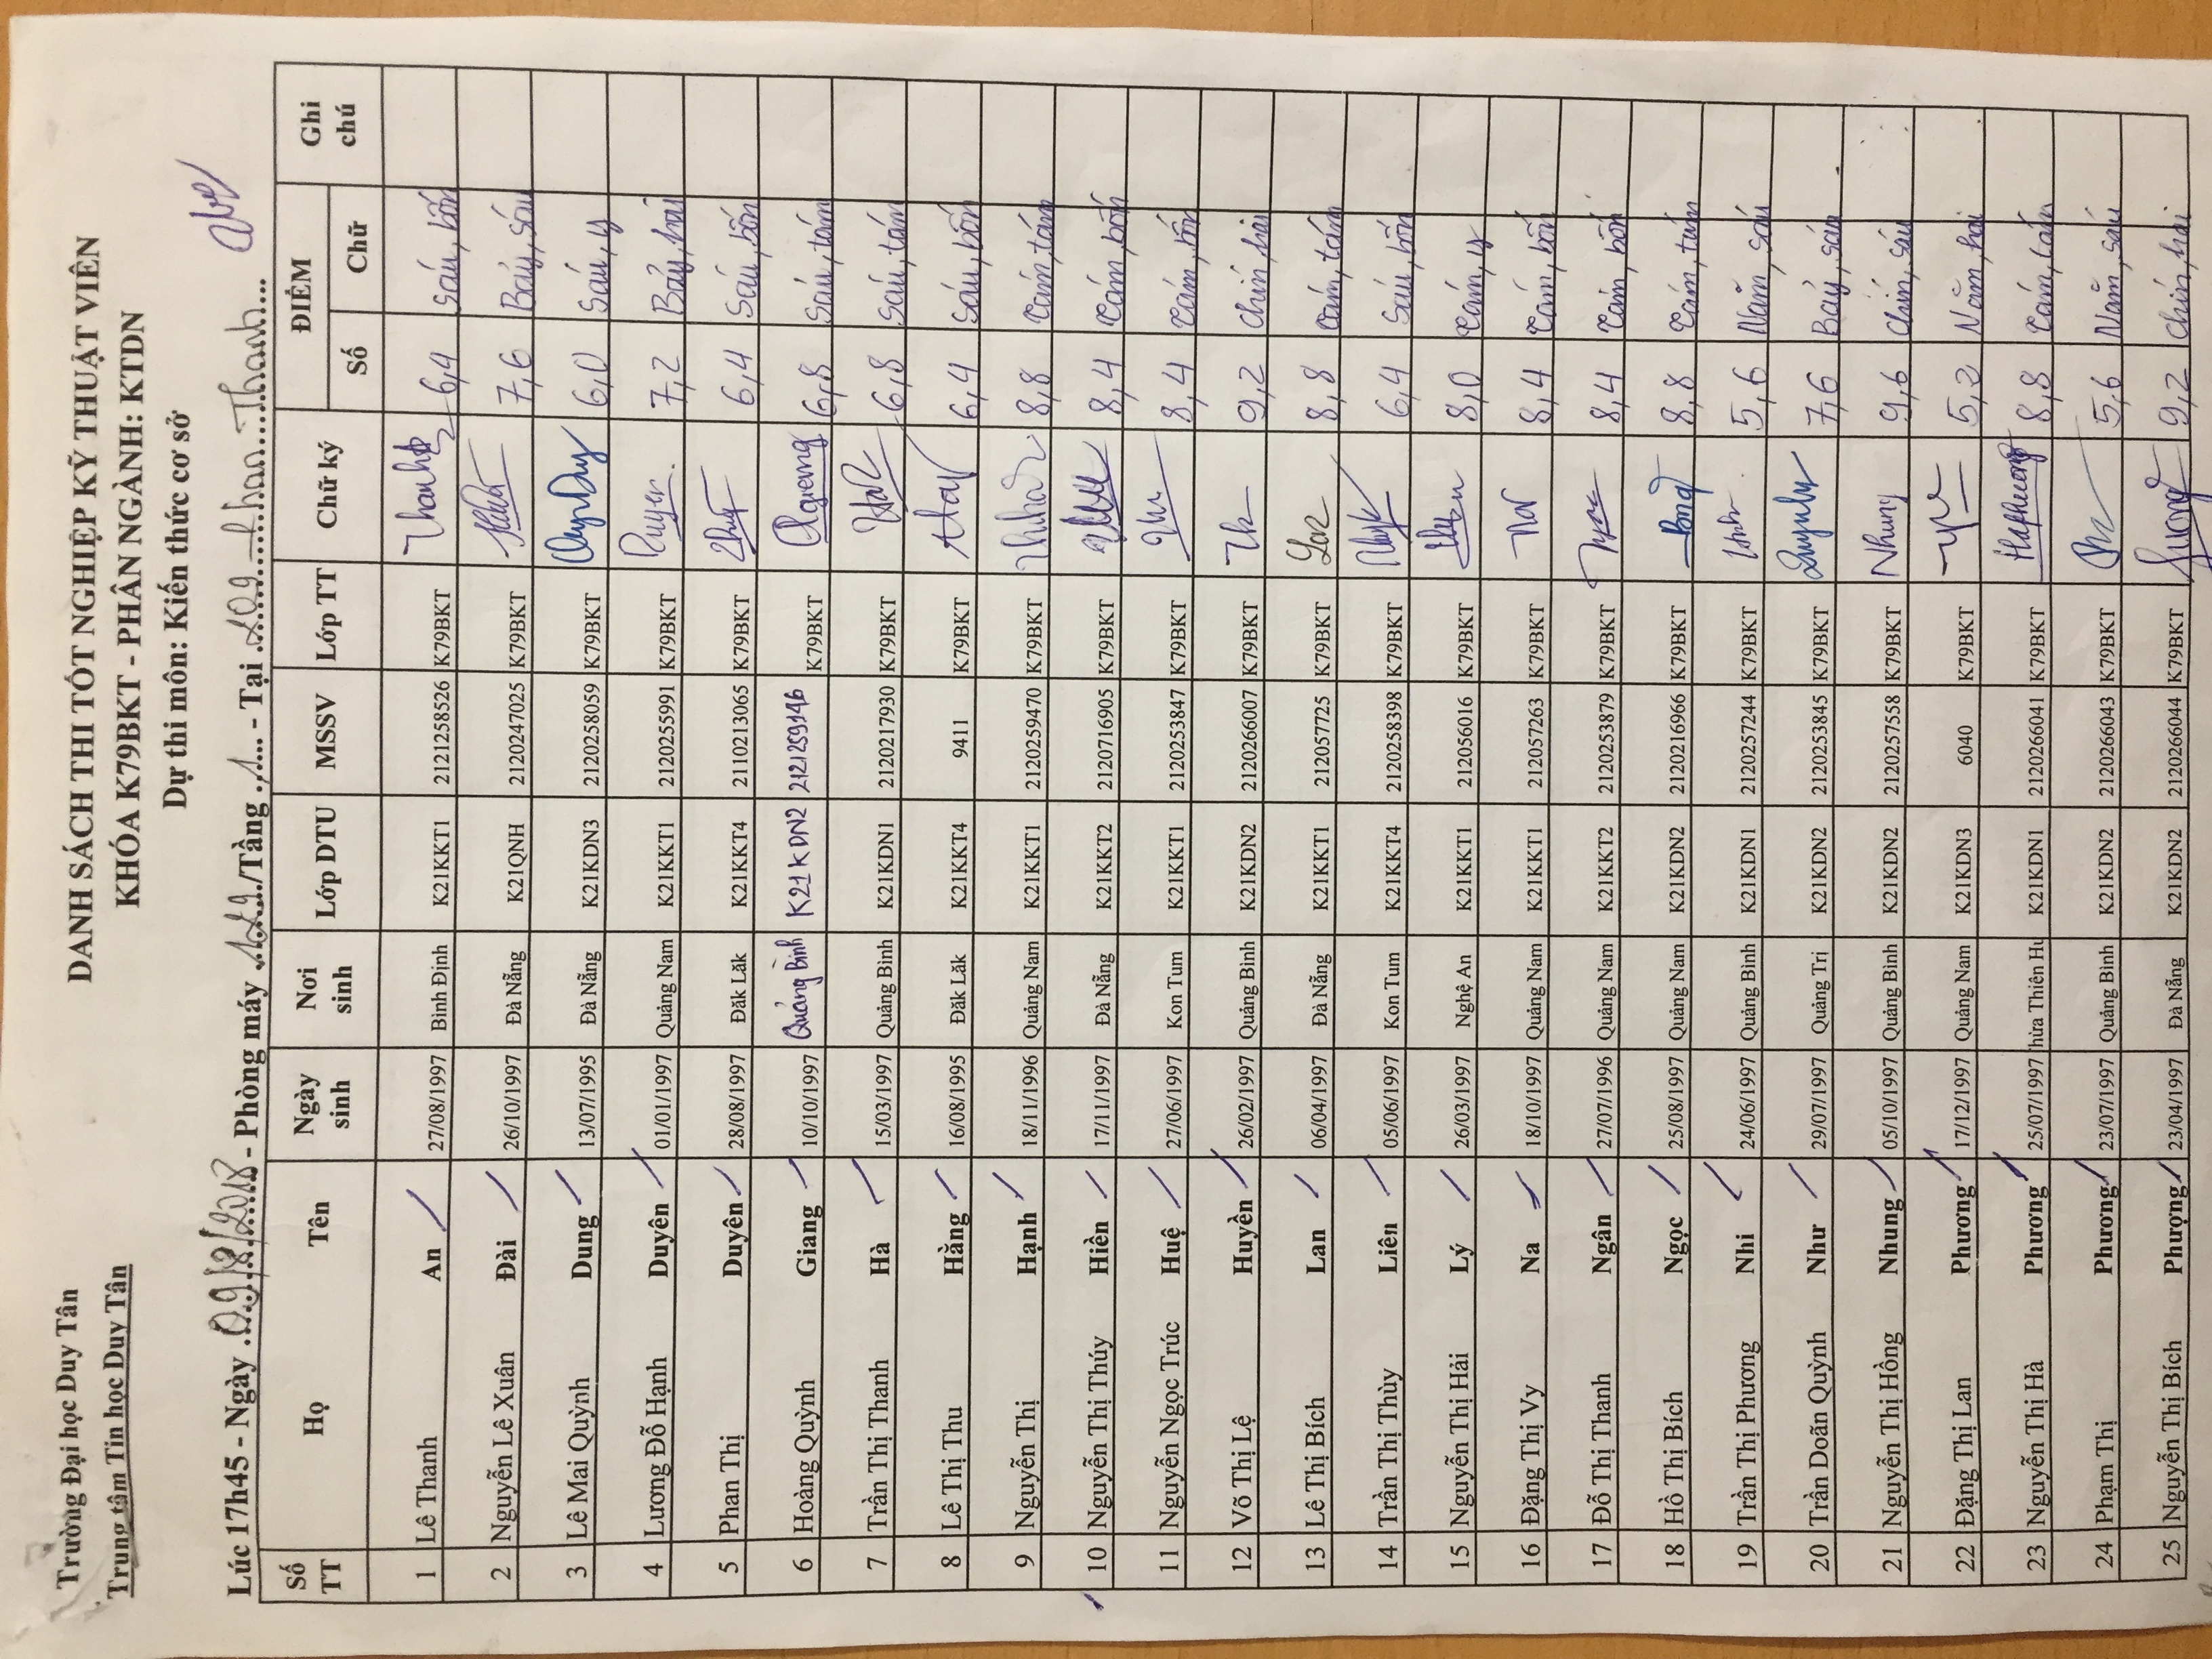 Trường Đại học Duy Tân
Trung tâm Tin học Duy Tân
DANH SÁCH THI TỐT NGHIỆP KỸ THUẬT VIÊN
KHÓA K79BKT - PHÂN NGÀNH: KTDN
Dự thi môn: Kiến thức cơ sở
Lúc 17h45 - Ngày 09/8/2018 - Phòng máy 129/Tầng 1 - Tại 209 Phan Thanh
Số TT Họ Tên Ngày sinh Nơi sinh Lớp DTU MSSV Lớp TT Chữ ký ĐIỂM Số Chữ Ghi chú
1 Lê Thanh An 27/08/1997 Bình Định K21KKT1 2121258526 K79BKT 6,4 Sáu, bốn
2 Nguyễn Lê Xuân Đài 26/10/1997 Đà Nẵng K21QNH 2120247025 K79BKT 7,6 Bảy, sáu
3 Lê Mai Quỳnh Dung 13/07/1995 Đà Nẵng K21KDN3 2120258059 K79BKT 6,0 Sáu, y
4 Lương Đỗ Hạnh Duyên 01/01/1997 Quảng Nam K21KKT1 2120255991 K79BKT Duyên 7,2 Bảy, hai
5 Phan Thị Duyên 28/08/1997 Đăk Lăk K21KKT4 2110213065 K79BKT 6,4 Sáu, bốn
6 Hoàng Quỳnh Giang 10/10/1997 Quảng Bình K21KDN2 2121259146 K79BKT 6,8 Sáu, tám
7 Trần Thị Thanh Hà 15/03/1997 Quảng Bình K21KDN1 2120217930 K79BKT 6,8 Sáu, tám
8 Lê Thị Thu Hằng 16/08/1995 Đăk Lăk K21KKT4 9411 K79BKT 6,4 Sáu, bốn
9 Nguyễn Thị Hạnh 18/11/1996 Quảng Nam K21KKT1 2120259470 K79BKT 8,8 Tám, tám
10 Nguyễn Thị Thúy Hiền 17/11/1997 Đà Nẵng K21KKT2 2120716905 K79BKT 8,4 Tám, bốn
11 Nguyễn Ngọc Trúc Huệ 27/06/1997 Kon Tum K21KKT1 2120253847 K79BKT 8,4 Tám, bốn
12 Võ Thị Lệ Huyền 26/02/1997 Quảng Bình K21KDN2 2120266007 K79BKT 9,2 Chín, hai
13 Lê Thị Bích Lan 06/04/1997 Đà Nẵng K21KKT1 212057725 K79BKT Lan 8,8 Tám, tám
14 Trần Thị Thùy Liên 05/06/1997 Kon Tum K21KKT4 2120258398 K79BKT 6,4 Sáu, bốn
15 Nguyễn Thị Hải Lý 26/03/1997 Nghệ An K21KKT1 212056016 K79BKT 8,0 Tám, y
16 Đặng Thị Vy Na 18/10/1997 Quảng Nam K21KKT1 212057263 K79BKT 8,4 Tám, bốn
17 Đỗ Thị Thanh Ngân 27/07/1996 Quảng Nam K21KKT2 2120253879 K79BKT 8,4 Tám, bốn
18 Hồ Thị Bích Ngọc 25/08/1997 Quảng Nam K21KDN2 2120216966 K79BKT 8,8 Tám, tám
19 Trần Thị Phương Nhi 24/06/1997 Quảng Bình K21KDN1 2120257244 K79BKT 5,6 Năm, sáu
20 Trần Doãn Quỳnh Như 29/07/1997 Quảng Trị K21KDN2 2120253845 K79BKT 7,6 Bảy, sáu
21 Nguyễn Thị Hồng Nhung 05/10/1997 Quảng Bình K21KDN2 2120257558 K79BKT Nhung 9,6 Chín, sáu
22 Đặng Thị Lan Phương 17/12/1997 Quảng Nam K21KDN3 6040 K79BKT 5,2 Năm, hai
23 Nguyễn Thị Hà Phương 25/07/1997 hừa Thiên Hu K21KDN1 2120266041 K79BKT HaPhuong 8,8 Tám, tám
24 Phạm Thị Phương 23/07/1997 Quảng Bình K21KDN2 2120266043 K79BKT 5,6 Năm, sáu
25 Nguyễn Thị Bích Phượng 23/04/1997 Đà Nẵng K21KDN2 2120266044 K79BKT 9,2 Chín, hai